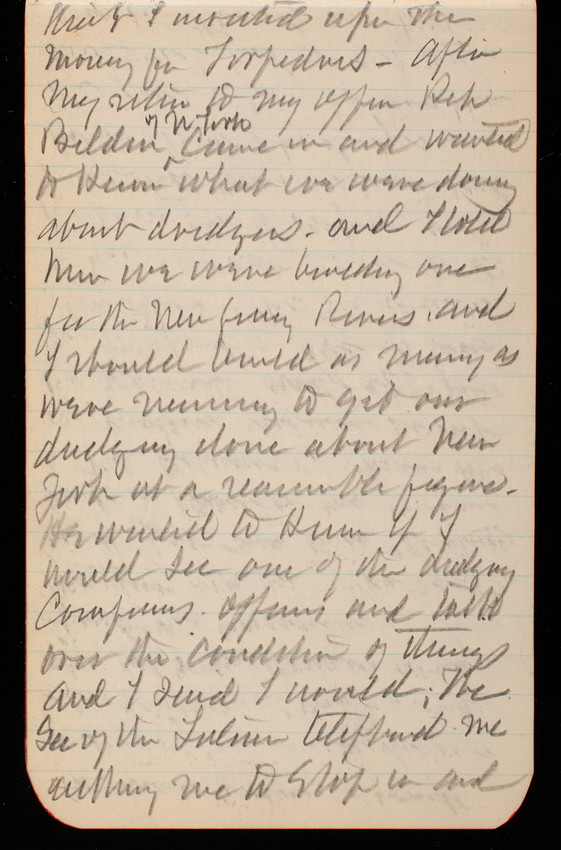 that I insisted upon the
money for Torpedoes - After
my return to my office Rep
Belden of N York came in and wanted
to know what we were doing
about dredgers. and I told
him we were building one
for the New Jersey Rivers. and
I should build as many as
were necessary to get our
dredging done about New
York at a reasonable figure.
He wanted to know if I
would see one of the dredging
Companies. officers and talk
over the condition of things
and I said I would; The
Sec of the Interior telephoned me
asking me to stop in and